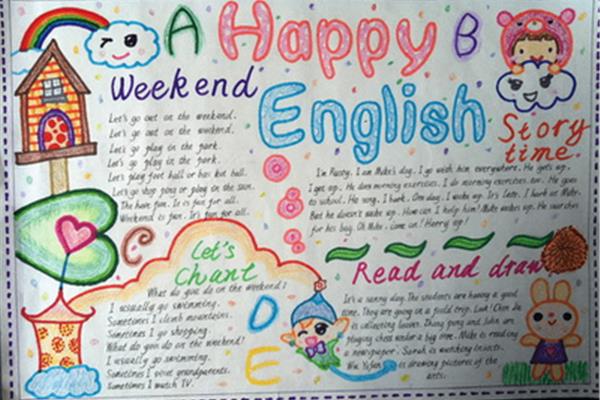 A Happy B
English
Weekend
Let's go out on the weekend.
Let's go out on the weekend.
Let's go play in the park.
Let's go play in the park.
Let's play foot ball or bas ket ball.
Let's go shop ping or play in the sun.
The have fun. It is fun for all.
Weekend is fun. It's fun for all.
Story
time.
I'm Rusty. I am Mike's dog. I go with him everywhere. He gets up.
I get up. He does morning exercises. I do morning exercises too. He goes
to school. He sing. I bark. One day. I wake up. It's late. I bark at Mike.
But he doesn't wake up. How can I help him? Mike wakes up. He searches
for his bag. Oh Mike. Come on! Hurry up!
C
Let's
Chant
What do you do on the weekend?
I usually go swimming.
Sometimes I climb mountains.
Sometimes I go shopping.
What do you do on the weekend?
I usually go swimming.
Sometimes I visit grandparents.
Sometimes I watch TV.
D
E
Read and draw
It's a sunny day. The students are having a good
time. They are on a field trip. Look! Chen Jie
is collecting leaves. Zhang peng and John are
playing chess under a big tree. Mike is reading
a newspaper. Sarah is watching insects.
Wu Yifan is drawing pictures of the
ants.